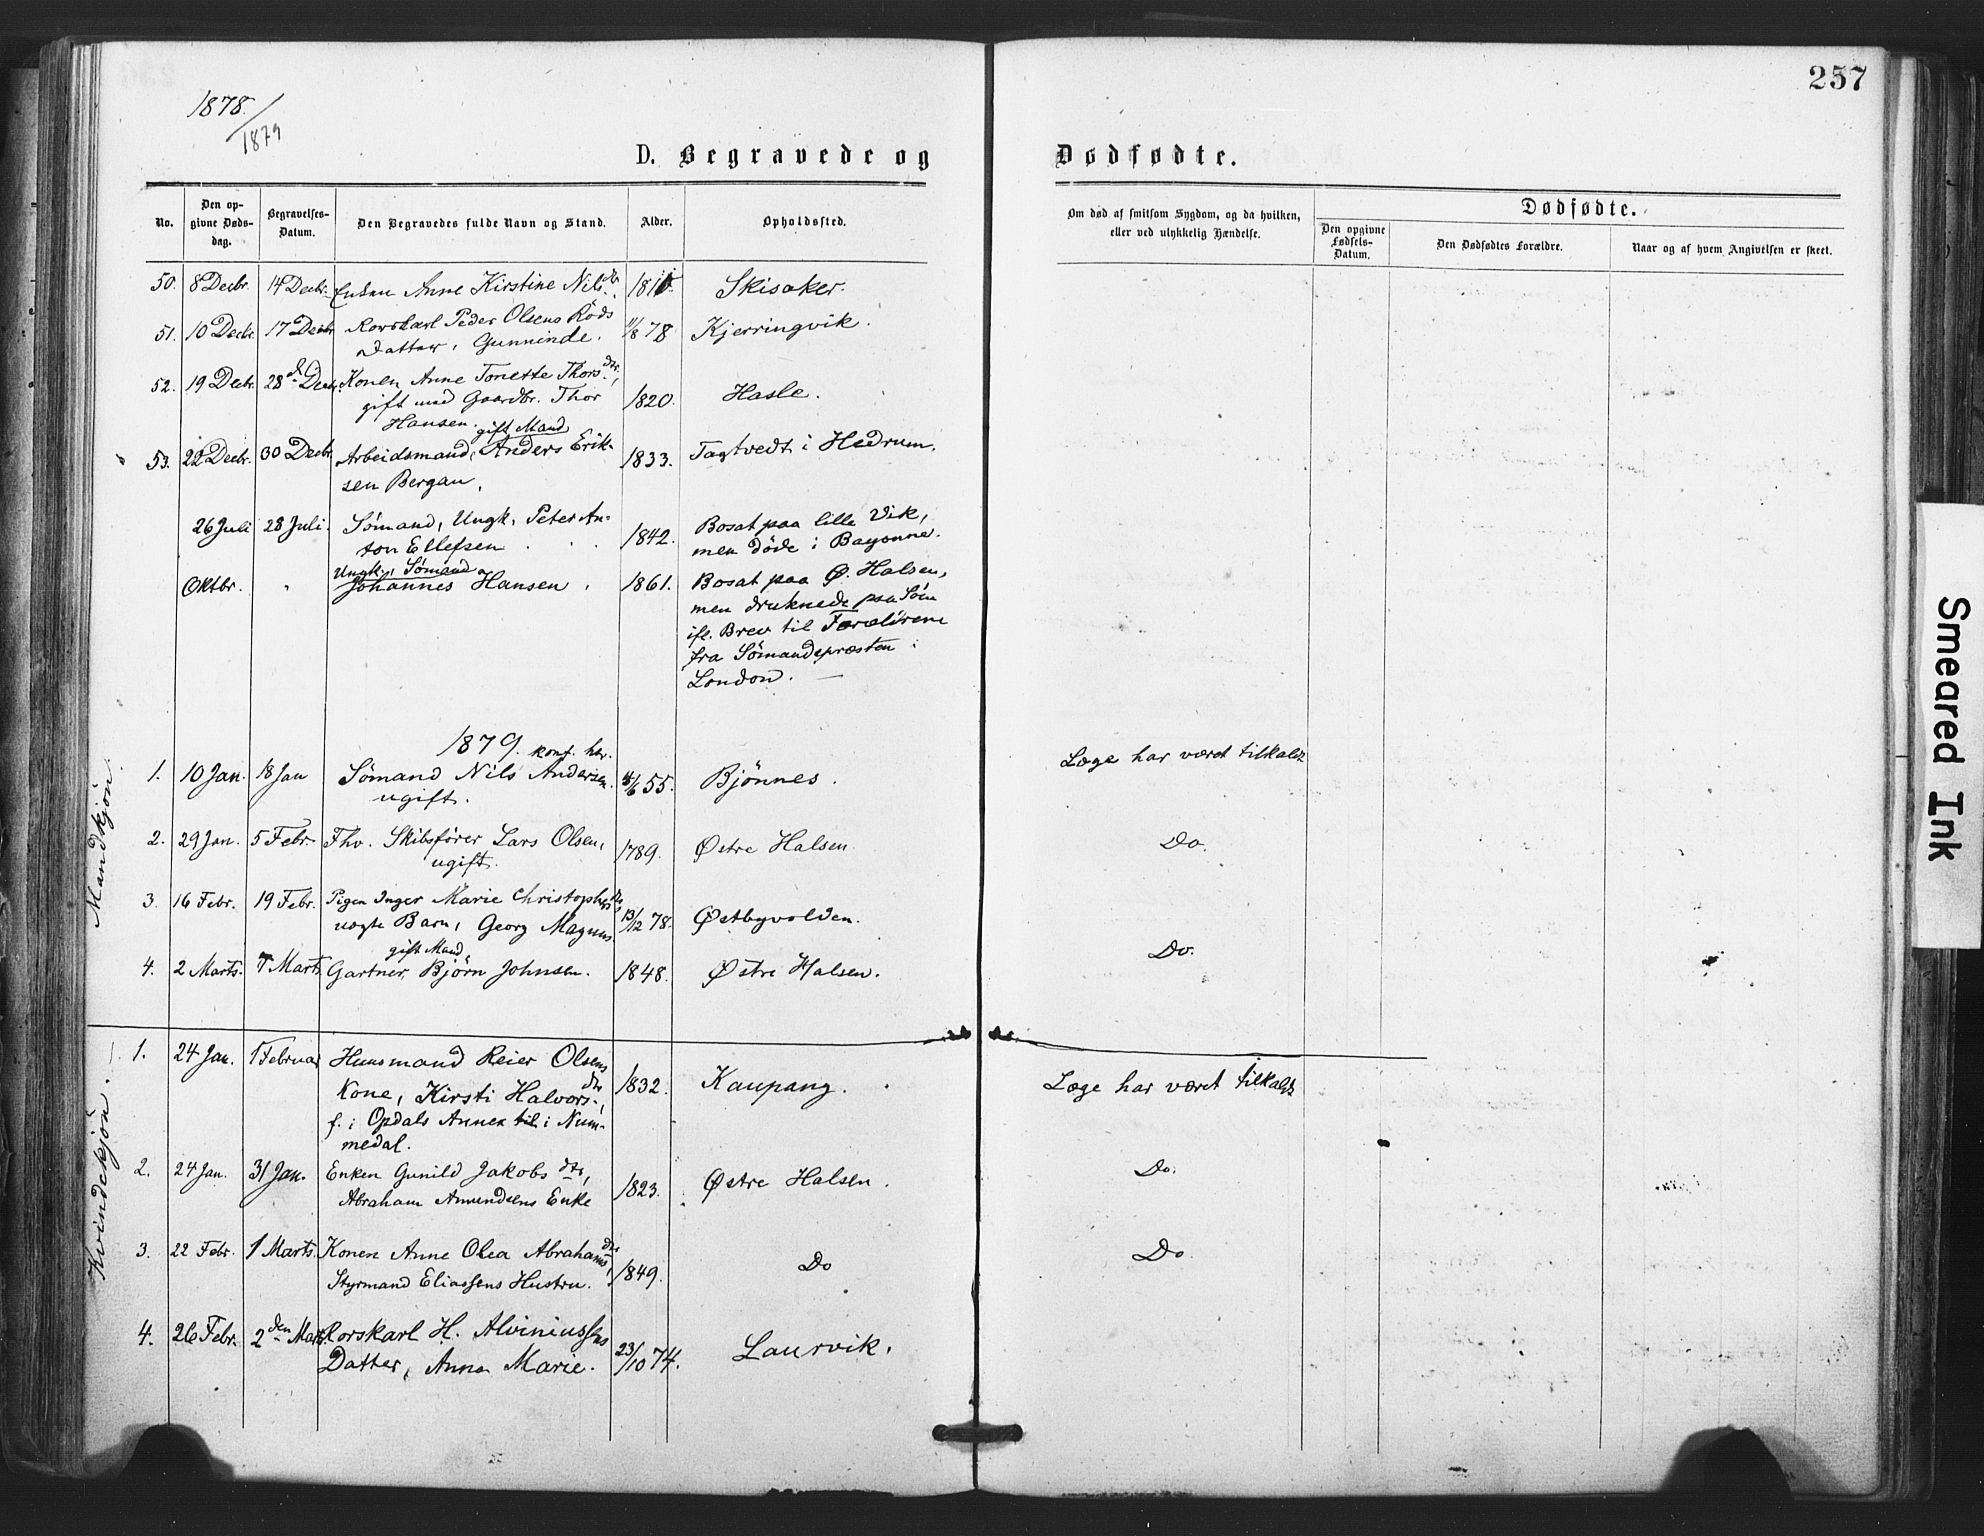 257
1878/1879
D. Begravede og Dødfødte.
No.
Den opgivne Dødsdag.
Begravelses-Datum.
Den Begravedes fulde Navn og Stand.
Alder.
Opholdssted.
Om død af smitsom Sygdom, og da hvilken,
eller ved ulykkelig Hændelse.
Dødfødte.
Den opgivne Fødsels-Datum.
Den Dødfødtes Forældre.
Naar og af hvem Angivelsen er skeet.
50. 8 Decbr. 14 Decbr. Enken Anne Kirstine Nilsdtr. Skisaker.
51. 10 Decbr. 17 Decbr. Rorskarl Peder Olsens Røds 11/8 78 Kjerringvik.
Datter, Gunninde.
52. 19 Decbr. 28de Decbr. Konen Anne Tonette Thorsdtr,
gift med Gaardbr. Thor 1820. Hasle.
Hansen.
gift Mand
53. 22 Decbr. 30 Decbr. Arbeidsmand, Anders Erik- 1833. Tagtvedt i Hedrum.
sen Bergan.
26 Juli 28 Juli. Sømand, Ungk. Peter An- 1842. Bosat paa lille Vik,
ton Ellefsen men døde i Bayonne.
Ungk., Sømand
Oktbr. " Johannes Hansen. 1861. Bosat paa Ø. Halsen,
men druknede paa Søen
ifl. Brev til Forældrene
fra Sømandspræsten i
London. —
1879.
konf. her.
Mandkjøn.
1. 10 Jan. 18 Jan Sømand Nils Andersen. /6 55. Bjønnes. Læge har været tilkaldt
ugift.
2. 29 Jan. 5 Febr. Fhv. Skibsfører, Lars Olsen, 1789. Østre Halsen. Do.
ugift.
3. 16 Febr. 19 Febr. Pigen Inger Marie Christophersdtr
uægte Barn, Georg Magnus. 13/12 78. Østbyvolden.
gift Mand
4. 2 Marts. 7 Marts Gartner, Bjørn Johnsen. 1848. Østre Halsen. Do.
Kvindekjøn.
1. 24 Jan. 1 Februar Huusmand Reier Olsens
Kone, Kirsti Halvorsdtr, 1832. Kaupang. Læge har været tilkaldt
f. i Opdals Annex til i Num-
medal.
2. 24 Jan. 31 Jan. Enken Gunild Jakobsdtr, 1823. Østre Halsen. Do.
Abraham Amundsens Enke
3. 22 Febr. 1 Marts. Konen Anne Olea Abrahamsdtr, 1849. Do Do
Styrmand Eliassens Hustru.
4. 26 Febr. 2den Marts. Rorskarl H. Alviniussens 23/10 74. Laurvik.
Datter, Anna Marie.
Smeared Ink